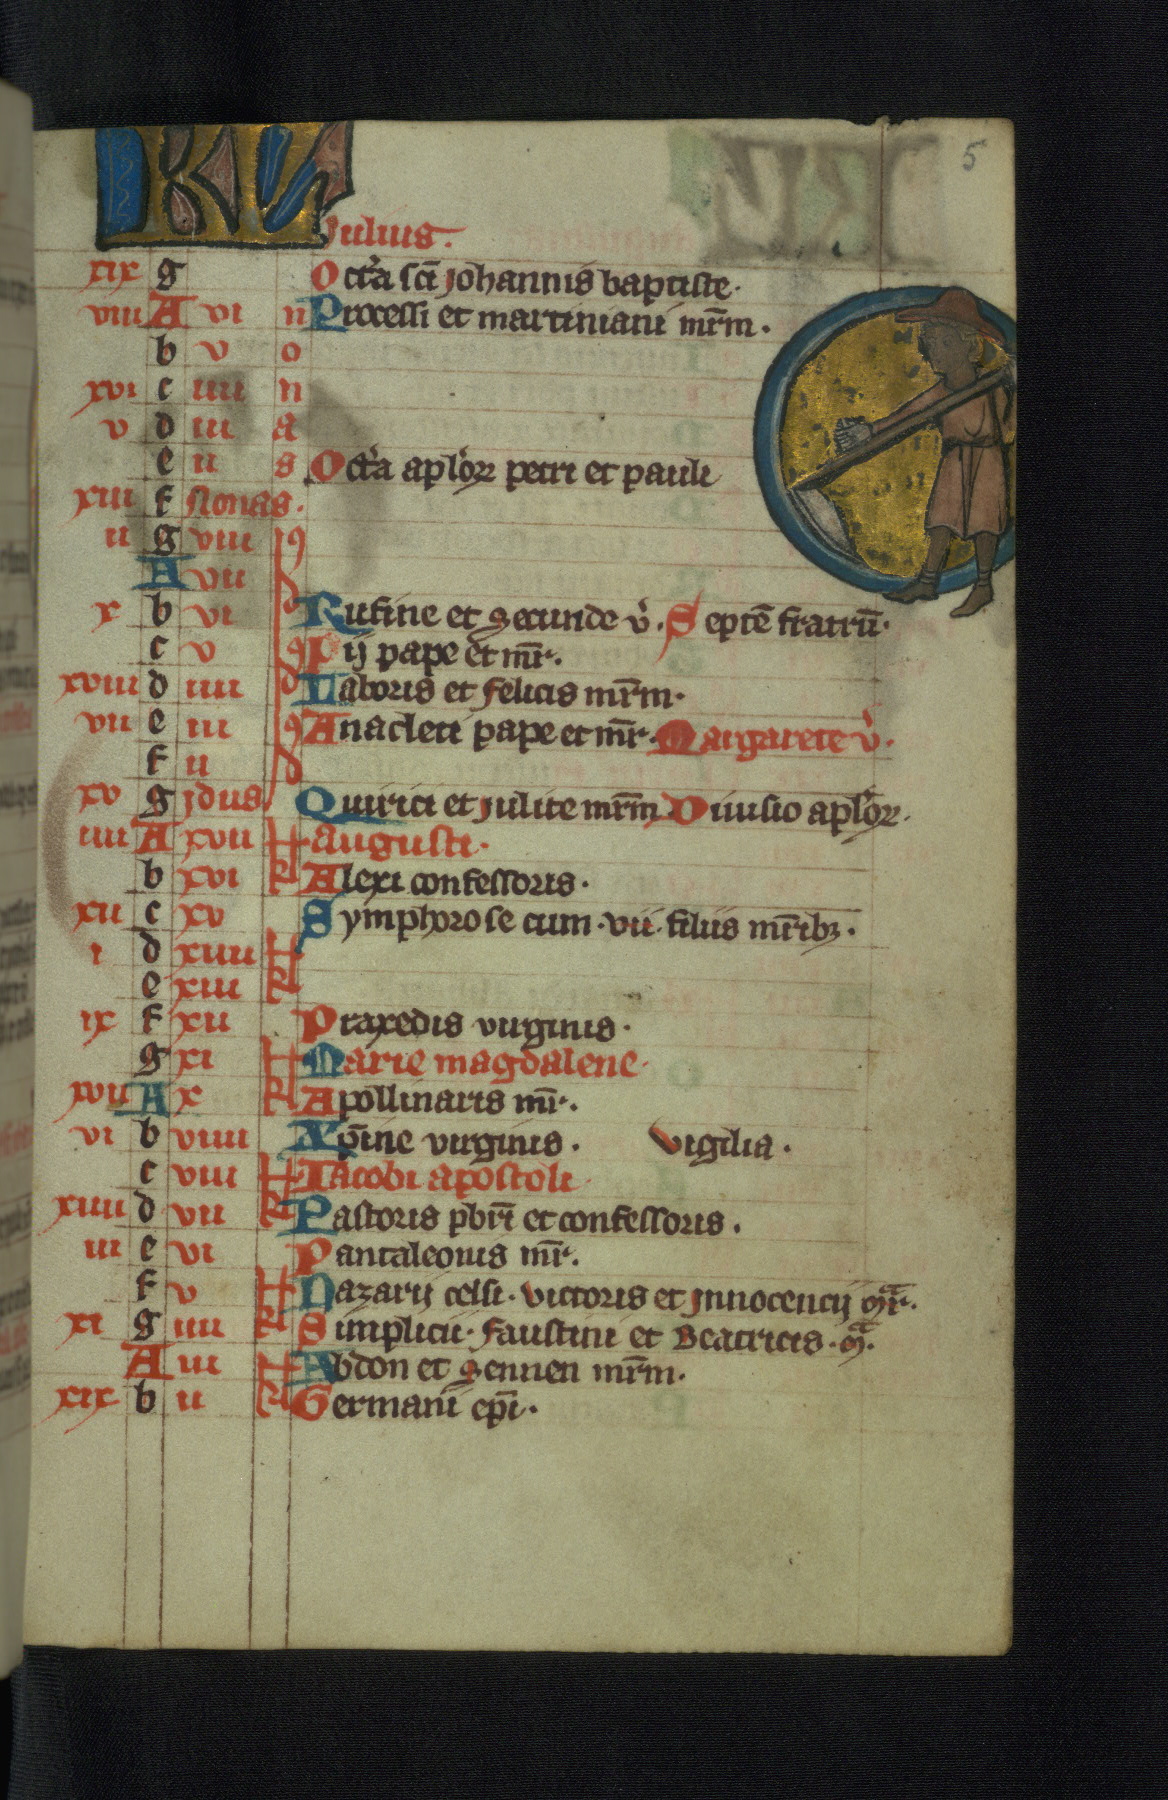 5
KL Julius.
xix g Octa sci Johannis baptiste.
viii A vi n Processi et martiniani mrm.
b v o
xvi c iiii n
v d iii a
e ii s Octa aplor petri et pauli
xiii f Nonas.
ii g viii id
A vii
x b vi Rufine et secunde v. Septe fratru.
c v id Pij pape et mr.
xviii d iiii Naboris et felicis mrm.
vii e iii id Anacleti pape et mr. Margarete v.
f ii
xv g Jdus Quirici et Julite mrm Diuisio aplor.
iiii A xvii kl augusti.
b xvi Alexi confessoris.
xii c xv Symphorose cum .vii. filiis mribz.
i d xiiii kl
e xiii
ix f xii Praxedis virginis.
g xi kl Marie magdalene.
xvii A x Apollinaris mr.
vi b viiii Xpine virginis. Vigilia.
c viii kl Jacobi apostoli
xiiii d vii Pastoris pbri et confessoris.
iii e vi Pantaleonis mr.
f v kl Nazarij celsi. victoris et Jnnocencij mr.
xi g iiii Simplicii. faustini et Beatricis. m.
A iii kl Abdon et sennen mrm.
xix b ii Germani epi.